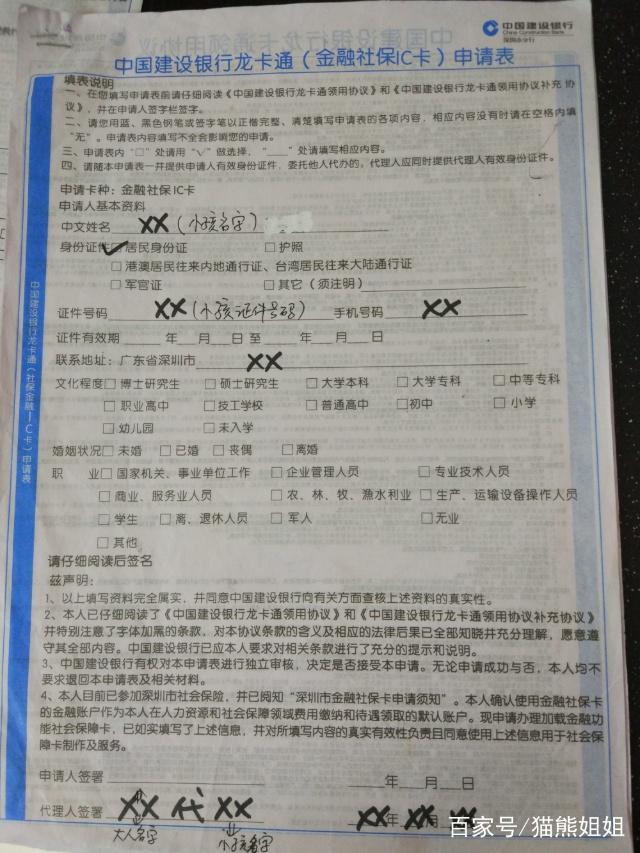 中国建设银行
China Construction Bank
深圳市分行
中国建设银行龙卡通（金融社保IC卡）申请表
填表说明
一、在您填写申请表前请仔细阅读《中国建设银行龙卡通领用协议》和《中国建设银行龙卡通领用协议补充 协
议》，并在申请人签字栏签字。
二、请您用蓝、黑色钢笔或签字笔以正楷完整、清楚填写申请表的各项内容，相应内容没有时请在空格内填
“无”。申请表内容填写不全会影响您的申请。
三、申请表内“□”处请用“√”做选择，“___”处请填写相应内容。
四、请随本申请表一并提供申请人有效身份证件。委托他人代办的，代理人应同时提供代理人有效身份证件。
申请卡种：金融社保IC卡
申请人基本资料
中文姓名 XX（小孩名字）
身份证件 ✓□居民身份证 □护照
□港澳居民往来内地通行证、台湾居民往来大陆通行证
□军官证 □其它（须注明）
证件号码 XX（小孩证件号码） 手机号码 XX
证件有效期 ___年___月___日 至 ___年___月___日
联系地址：广东省深圳市 XX
文化程度□博士研究生 □硕士研究生 □大学本科 □大学专科 □中等专科
□职业高中 □技工学校 □普通高中 □初中 □小学
□幼儿园 □未入学
婚姻状况□未婚 □已婚 □丧偶 □离婚
职 业□国家机关、事业单位工作 □企业管理人员 □专业技术人员
□商业、服务业人员 □农、林、牧、渔水利业 □生产、运输设备操作人员
□学生 □离、退休人员 □军人 □无业
□其他
请仔细阅读后签名
兹声明：
1、以上填写资料完全属实，并同意中国建设银行向有关方面查核上述资料的真实性。
2、本人已仔细阅读了《中国建设银行龙卡通领用协议》和《中国建设银行龙卡通领用协议补充协议》
并特别注意了字体加黑的条款，对本协议条款的含义及相应的法律后果已全部知晓并充分理解，愿意遵
守其全部内容。中国建设银行已应本人要求对相关条款进行了充分的提示和说明。
3、中国建设银行有权对本申请表进行独立审核，决定是否接受本申请。无论申请成功与否，本人均不
要求退回本申请表及相关材料。
4、本人目前已参加深圳市社会保险，并已阅知“深圳市金融社保卡申请须知”。本人确认使用金融社保卡
的金融账户作为本人在人力资源和社会保障领域费用缴纳和待遇领取的默认账户。现申请办理加载金融功
能社会保障卡，已如实填写了上述信息，并对所填写内容的真实有效性负责且同意使用上述信息用于社会保
障卡制作及服务。
申请人签署 ___年___月___日
代理人签署 XX 代 XX XX年 XX月 XX
大人名字 小孩名字
中国建设银行龙卡通（社保金融IC卡）申请表
百家号/猫熊姐姐